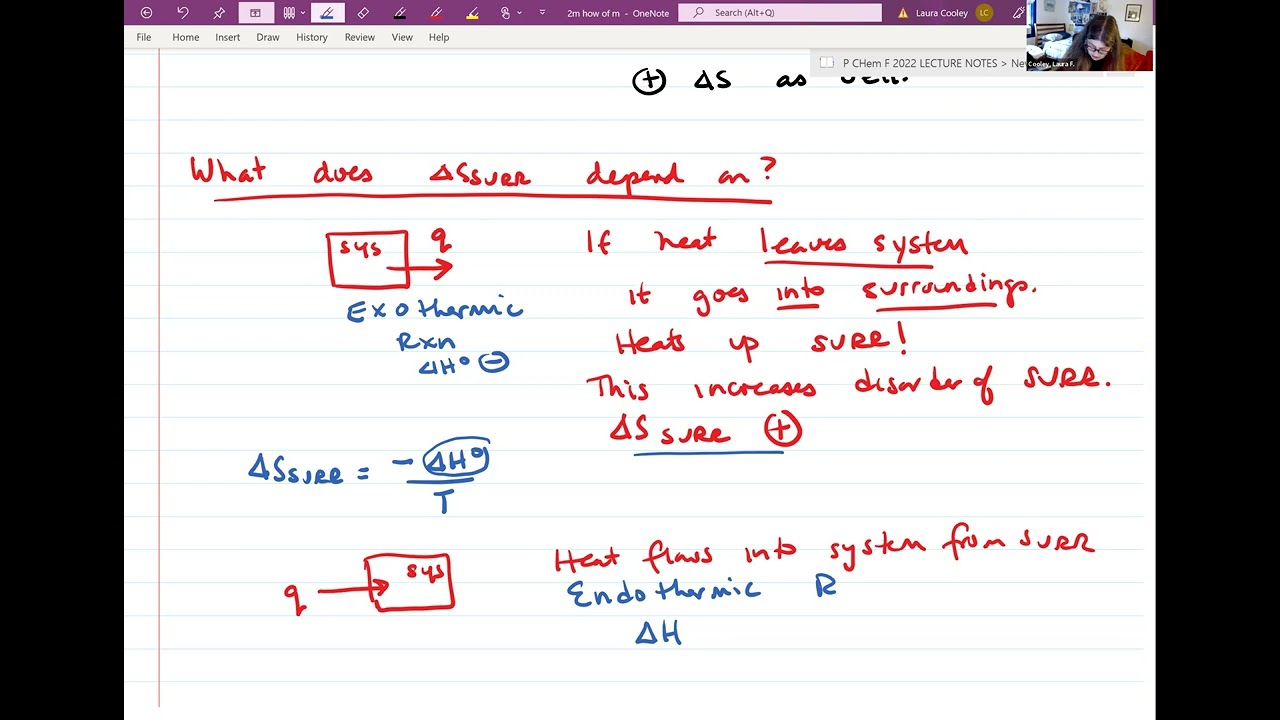 2m how of m - OneNote
Search (Alt+Q)
Laura Cooley
LC
File Home Insert Draw History Review View Help
P CHem F 2022 LECTURE NOTES >
Cooley, Laura F.
⊕ ΔS as
What does ΔSSURR depend on?
sys q
Exothermic
Rxn
ΔH° ⊖
If heat leaves system
it goes into surroundings.
Heats up SURR!
This increases disorder of SURR.
ΔS SURR ⊕
ΔSSURR = - ΔH°
T
q sys
Heat flows into system from SURR
Endothermic R
ΔH